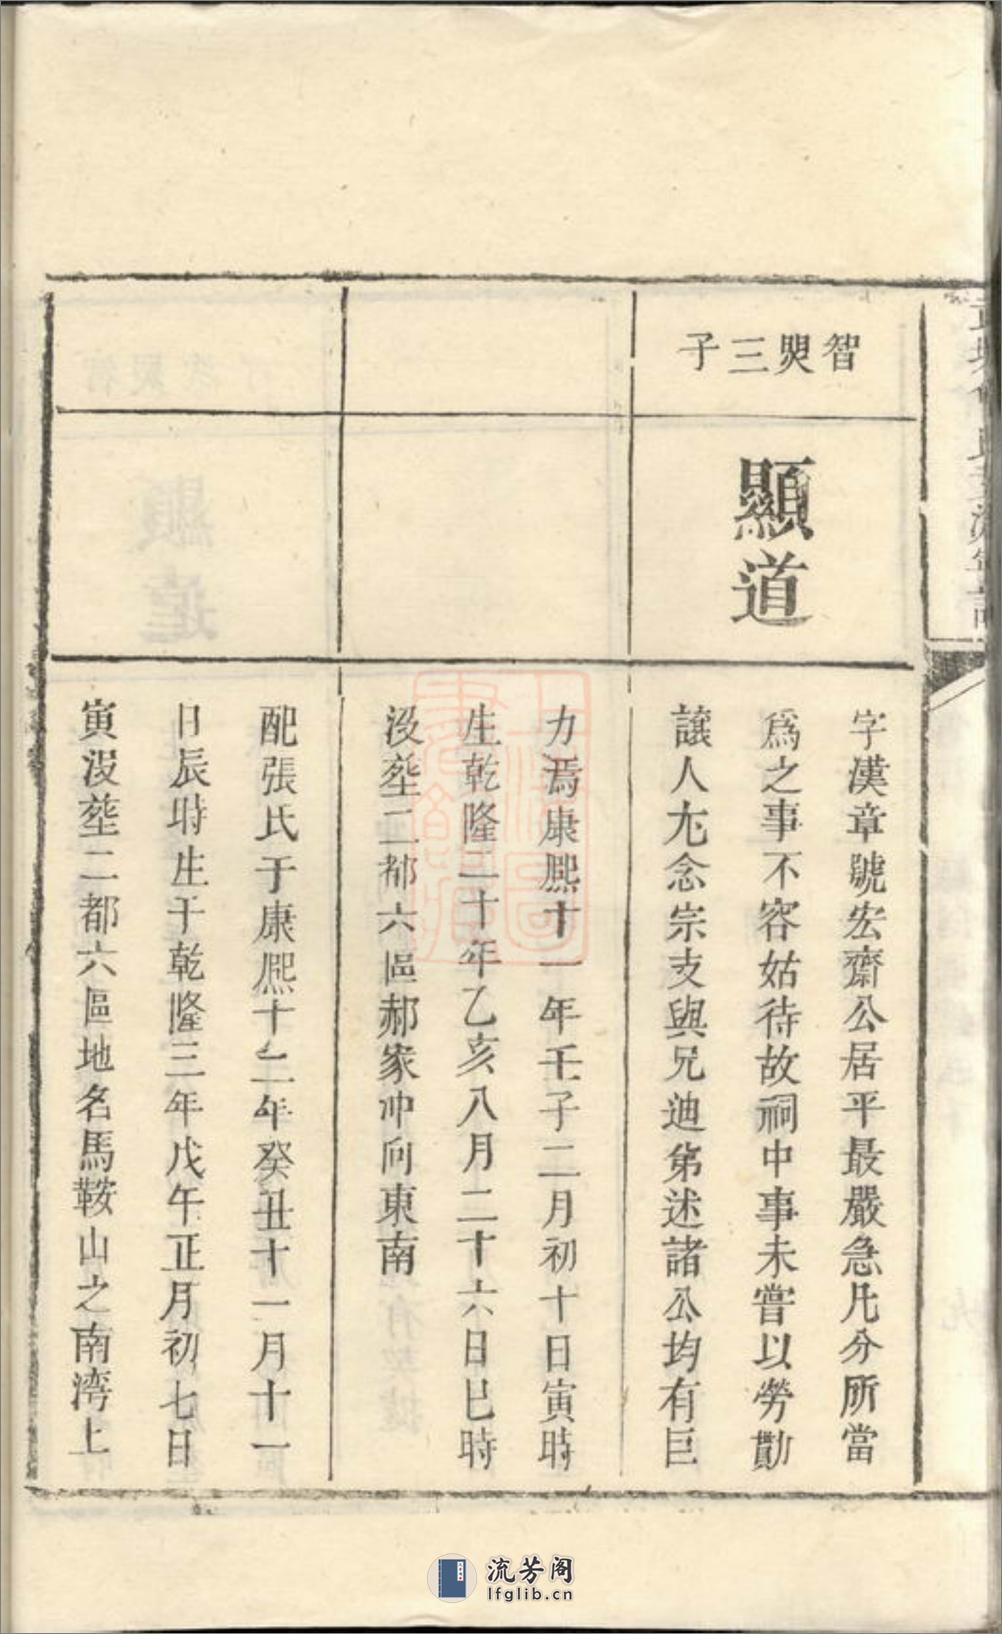 智㷼三子
顯道
字漢章號宏齋公居平最嚴急凡分所當
爲之事不容姑待故祠中事未嘗以勞勩
讓人尢念宗支與兄迪弟述諸公均有巨
力焉康熙十一年壬子二月初十日寅時
生乾隆二十年乙亥八月二十六日巳時
沒塟二都六區郝家冲向東南
配張氏于康熙十二年癸丑十一月十一
日辰時生于乾隆三年戊午正月初七日
寅沒塟二都六區地名馬鞍山之南湾上
流芳阁
lfglib.cn